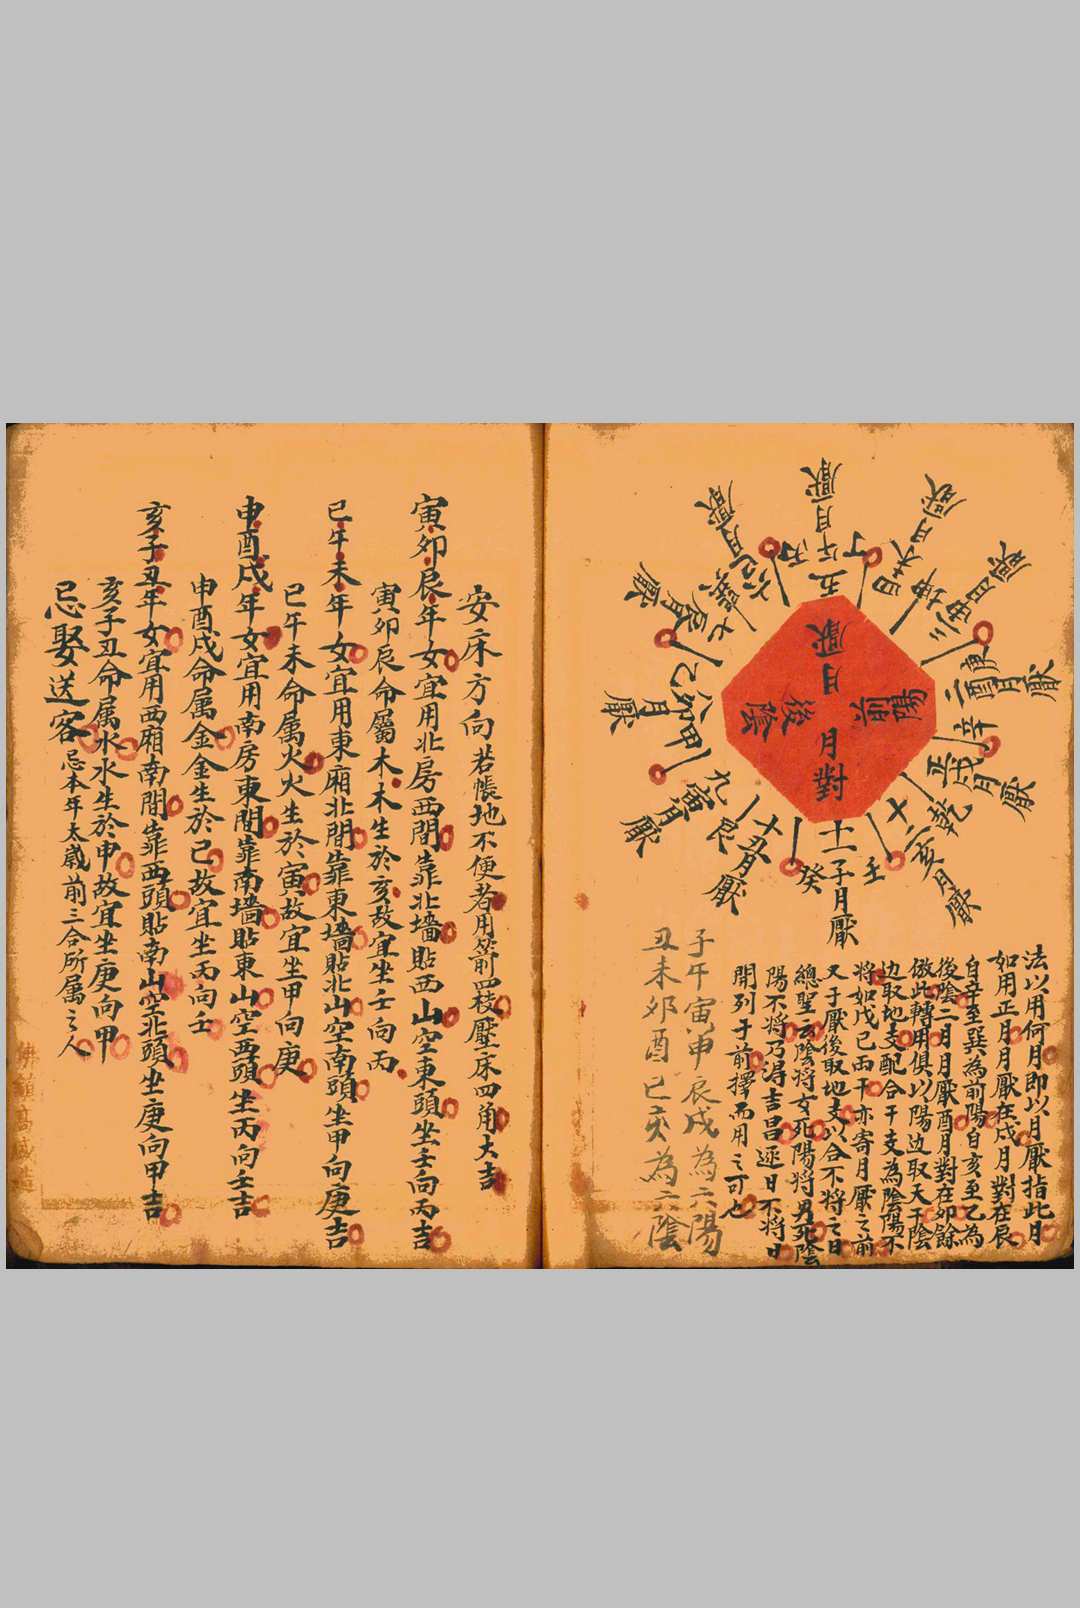 月厭
陽前
後陰
月對
十一子月厭
壬
十亥月厭
乾
正戌月厭
辛
二酉月厭
庚
三申月厭
坤
四未月厭
丁
五午月厭
丙
六巳月厭
巽
七辰月厭
乙
八卯月厭
甲
九寅月厭
艮
十二丑月厭
癸
法以用何月即以月厭指此月
如用正月月厭在戌月對在辰
自辛至巽為前陽自亥至乙為
後陰二月月厭酉月對在卯餘
倣此轉用俱以陽边取天干陰
边取地支配合干支為陰陽不
將如戊己兩干亦寄月厭之前
又于厭後取地支以合不將之日
總聖云陰將女死陽將男死陰
陽不將乃得吉昌逐日不將日
開列于前擇而用之可也
子午寅申辰戌為六陽
丑未卯酉巳亥為六陰
安床方向若帳地不便者用箭四枝壓床四角大吉
寅卯辰年女宜用北房西間靠北墻貼西山空東頭坐壬向丙吉
寅卯辰命屬木木生於亥故宜坐壬向丙
巳午未年女宜用東廂北間靠東墻貼北山空南頭坐甲向庚吉
巳午未命属火火生於寅故宜坐甲向庚
申酉戌年女宜用南房東間靠南墻貼東山空西頭坐丙向壬吉
申酉戌命属金金生於巳故宜坐丙向壬
亥子丑年女宜用西廂南間靠西頭貼南山空北頭坐庚向甲吉
亥子丑命属水水生於申故宜坐庚向甲
忌娶送客忌本年太歲前三合所属之人